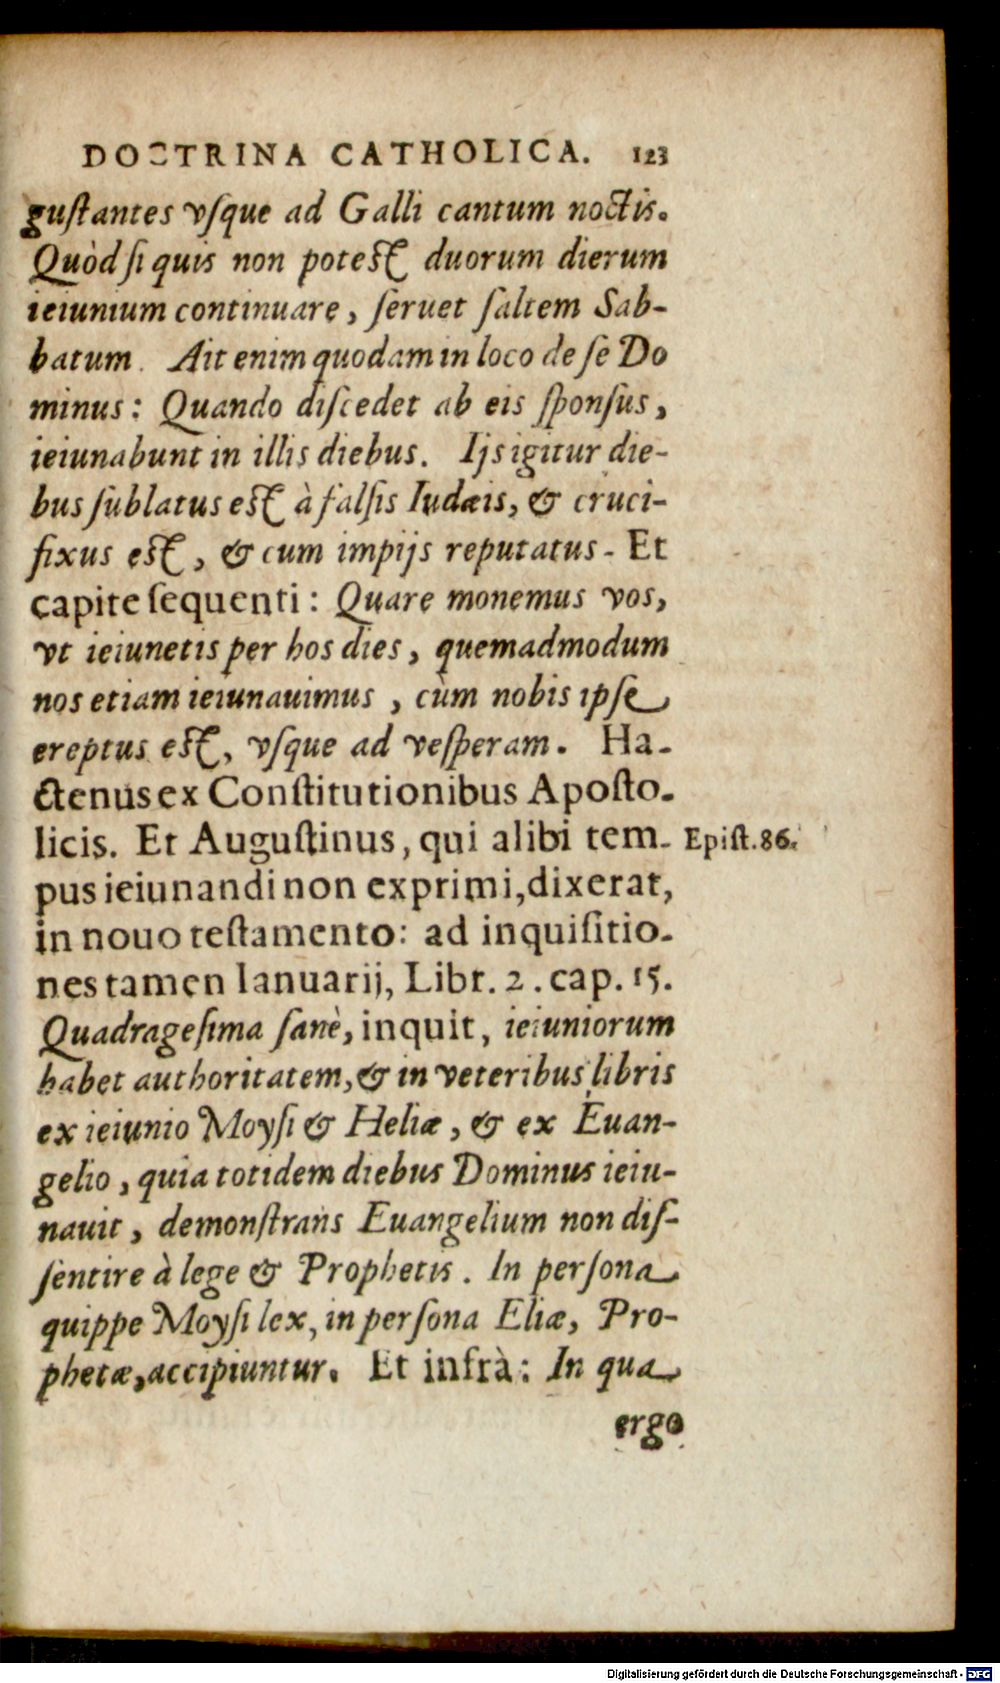 DOCTRINA CATHOLICA. 123
guſtantes vſque ad Galli cantum noctis.
Quòd ſi quis non poteſt duorum dierum
ieiunium continuare, ſeruet ſaltem Sab-
batum. Ait enim quodam in loco de ſe Do
minus: Quando diſcedet ab eis ſponſus,
ieiunabunt in illis diebus. Ijs igitur die-
bus ſublatus eſt à falſis Iudæis, & cruci-
fixus eſt, & cum impijs reputatus. Et
capite ſequenti: Quare monemus vos,
vt ieiunetis per hos dies, quemadmodum
nos etiam ieiunauimus, cùm nobis ipſe
ereptus eſt, vſque ad veſperam. Ha-
ctenus ex Conſtitutionibus Apoſto-
licis. Et Auguſtinus, qui alibi tem- Epiſt. 86.
pus ieiunandi non exprimi, dixerat,
in nouo teſtamento: ad inquiſitio-
nes tamen Ianuarij, Libr. 2. cap. 15.
Quadrageſima ſanè, inquit, ieiuniorum
habet authoritatem, & in veteribus libris
ex ieiunio Moyſi & Heliæ, & ex Euan-
gelio, quia totidem diebus Dominus ieiu-
nauit, demonſtrans Euangelium non diſ-
ſentire à lege & Prophetis. In perſona
quippe Moyſi lex, in perſona Eliæ, Pro-
phetæ, accipiuntur. Et infrà: In qua
ergo
Digitalisierung gefördert durch die Deutsche Forschungsgemeinschaft - DFG